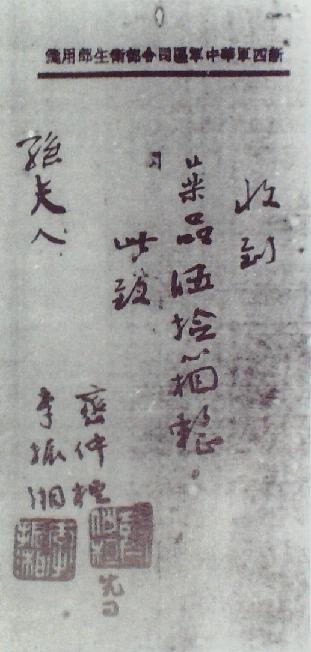 新四軍華中軍區司令部衛生部用箋
收到
薬品伍拾箱整。
此致
孫夫人
齊仲桓
李振湘